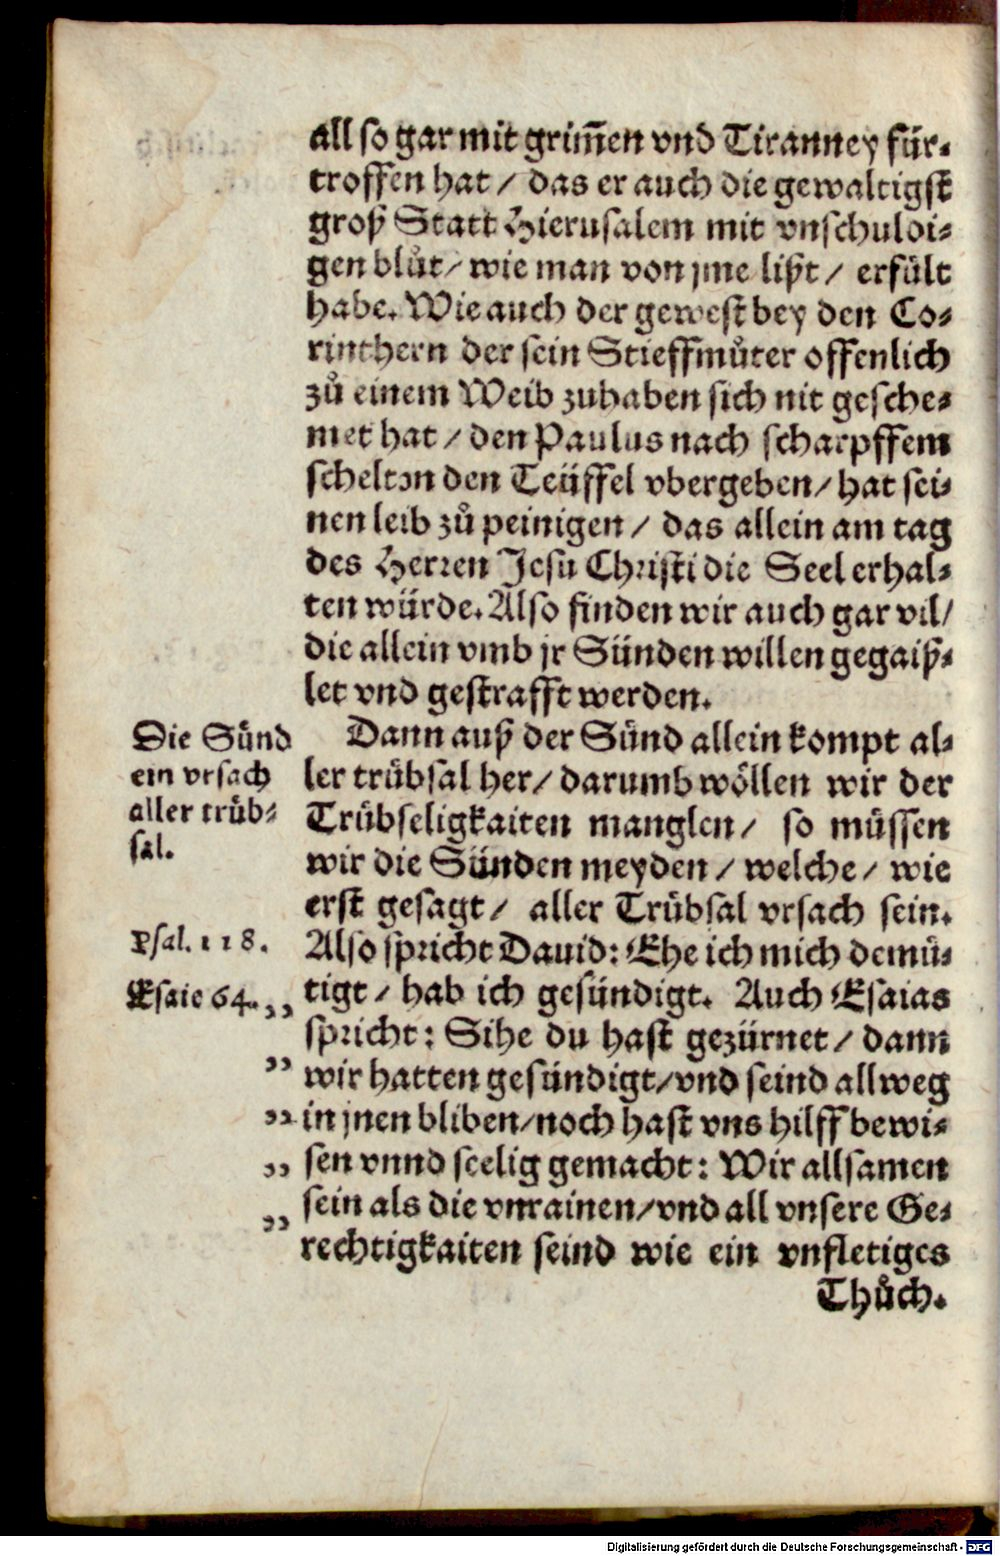 all so gar mit grim̃en vnd Tiranney für-
troffen hat / das er auch die gewaltigst
groß Statt Hierusalem mit vnschuldi-
gen blůt / wie man von jme lißt / erfült
habe. Wie auch der gewest bey den Co-
rinthern der sein Stieffmůter offenlich
zů einem Weib zuhaben sich nit gesche-
met hat / den Paulus nach scharpffem
schelten den Teüffel vbergeben / hat sei-
nen leib zů peinigen / das allein am tag
des Herren Jesu Christi die Seel erhal-
ten würde. Also finden wir auch gar vil /
die allein vmb jr Sünden willen gegaiß-
let vnd gestrafft werden.
Die Sünd
ein vrsach
aller trüb-
sal.
Dann auß der Sünd allein kompt al-
ler trübsal her / darumb wöllen wir der
Trübseligkaiten manglen / so müssen
wir die Sünden meyden / welche / wie
erst gesagt / aller Trübsal vrsach sein.
Psal. 118.
Also spricht Dauid: Ehe ich mich demü-
Esaie 64. ,,
tigt / hab ich gesündigt. Auch Esaias
spricht: Sihe du hast gezürnet / dann
,, wir hatten gesündigt / vnd seind allweg
,, in jnen bliben / noch hast vns hilff bewi-
,, sen vnnd seelig gemacht: Wir allsamen
,, sein als die vnrainen / vnd all vnsere Ge-
rechtigkaiten seind wie ein vnfletiges
Thůch.
Digitalisierung gefördert durch die Deutsche Forschungsgemeinschaft - DFG